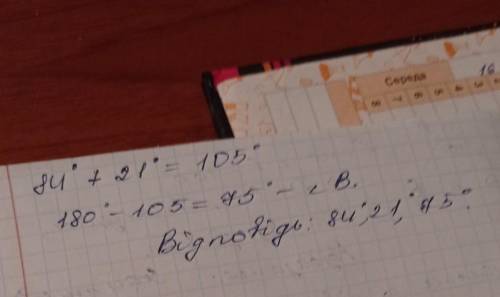 16
Середа
8 7 6 5 4 3
84° + 21° = 105°
180° - 105 = 75° - ∠ B.
Відповідь: 84°, 21°, 75°.